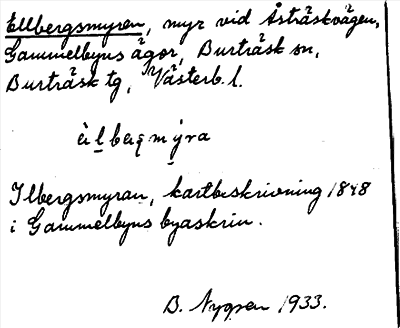 Ellbergsmyren, myr vid Åsträskvägen,
Gammelbyns ägor, Burträsk sn,
Burträsk tg, Västerb. l.
èlbeŗmýra
Ilbergsmyran, kartbeskrivning 1848
i Gammelbyns byaskrin.
B. Nygren 1933.